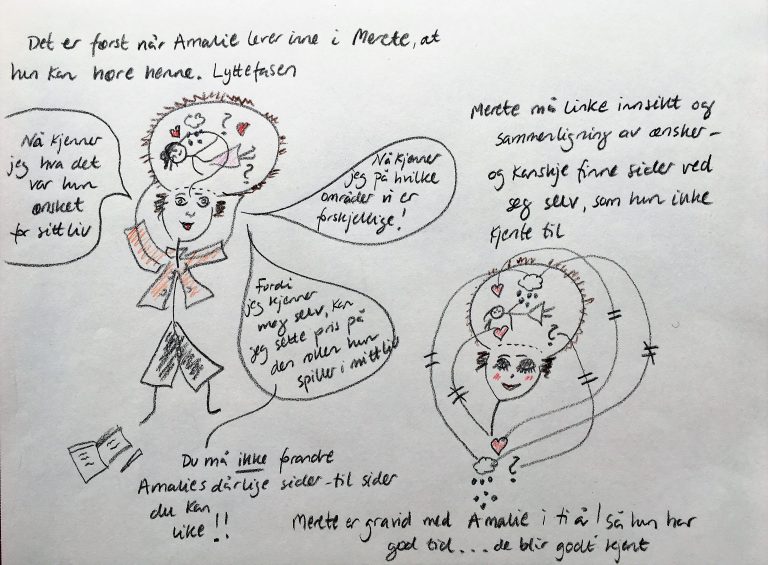 Det er først når Amalie lever inne i Merete, at
hun kan høre henne. Lyttefasen
Nå kjenner
jeg hva det
var hun
ønsket
for sitt liv
Nå kjenner
jeg på hvilke
områder vi er
forskjellige!
Fordi
jeg kjenner
meg selv, kan
jeg sette pris på
den rollen hun
spiller i mitt liv
Du må ikke forandre
Amalies dårlige sider - til sider
du kan
like!!
Merete må linke innsikt og
sammerligning av ønsker -
og kanskje finne sider ved
seg selv, som hun ikke
kjente til
?
?
?
?
?
Merete er gravid med Amalie i ti år! Så hun har
god tid... de blir godt kjent